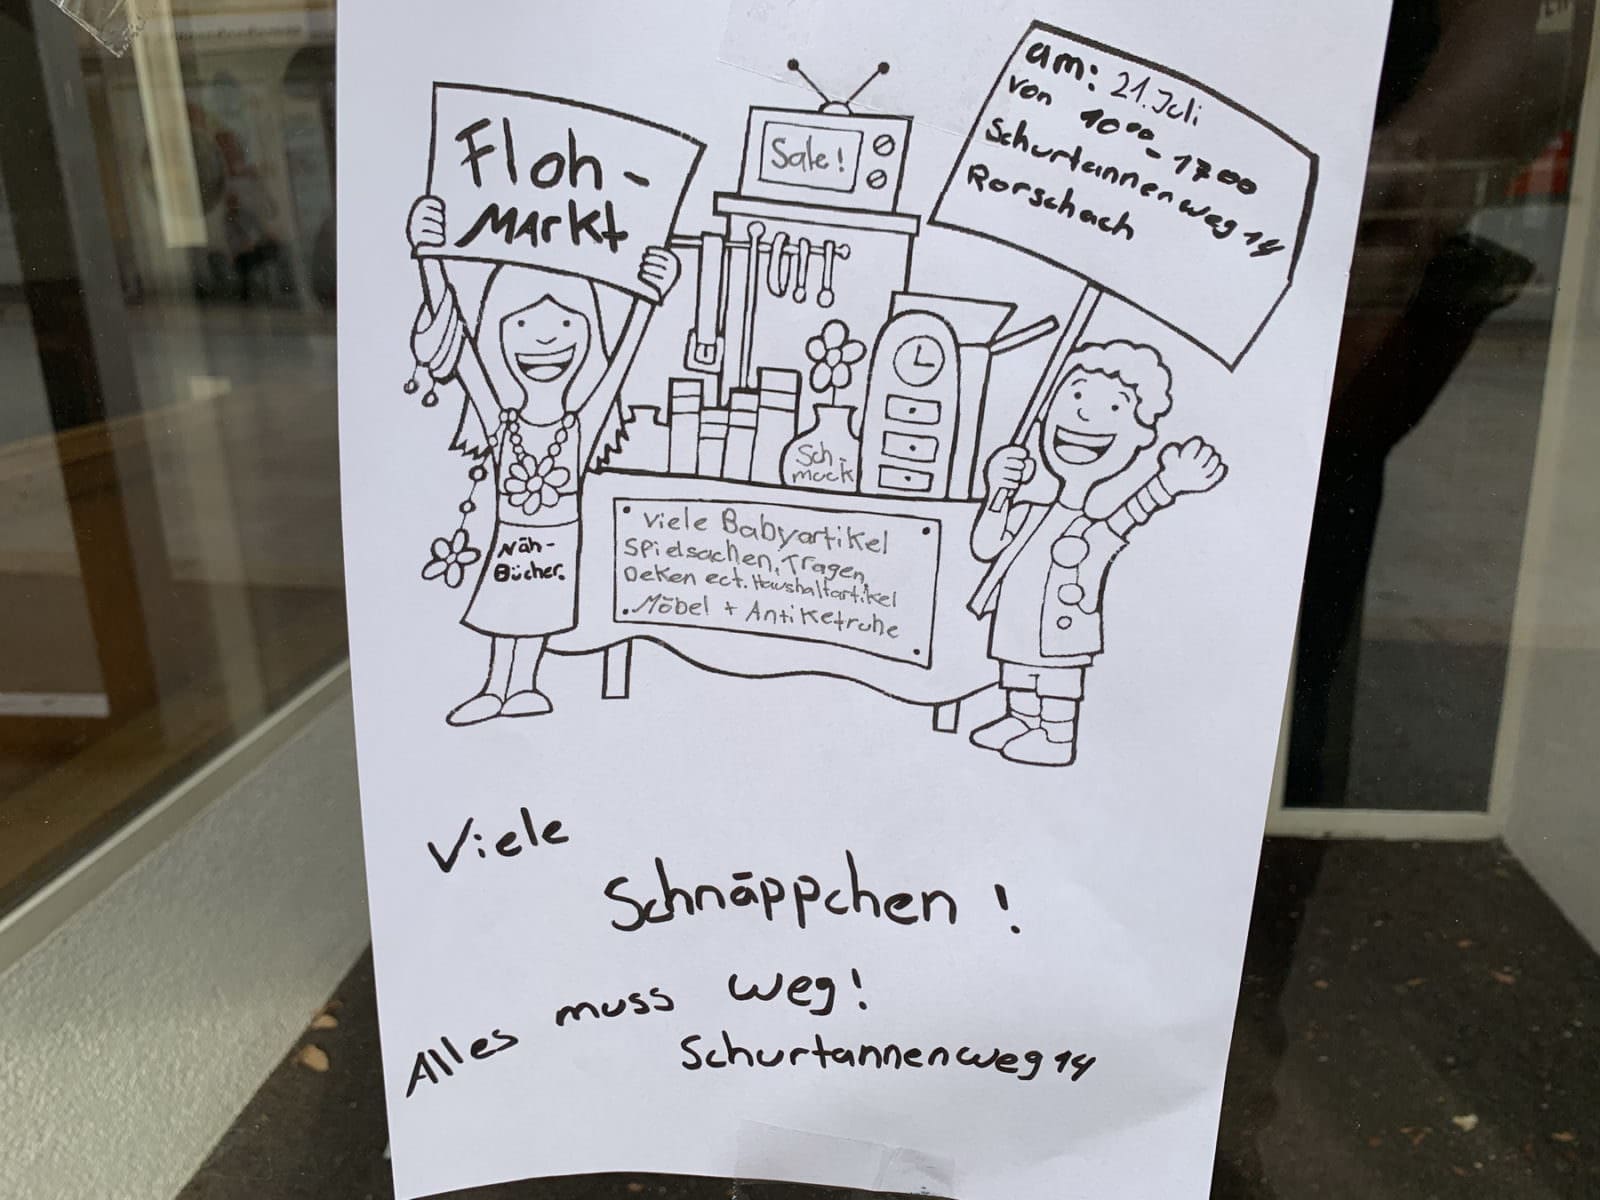 Floh-
Markt
Sale!
am: 21. Juli
von 10⁰⁰ - 17⁰⁰
Schurtannenweg 14
Rorschach
Sch-
muck
Näh-
Bücher.
Viele Babyartikel
Spielsachen, Tragen,
Deken ect. Haushaltartikel
Möbel + Antiketruhe
Viele
Schnäppchen!
Alles muss weg!
Schurtannenweg 14